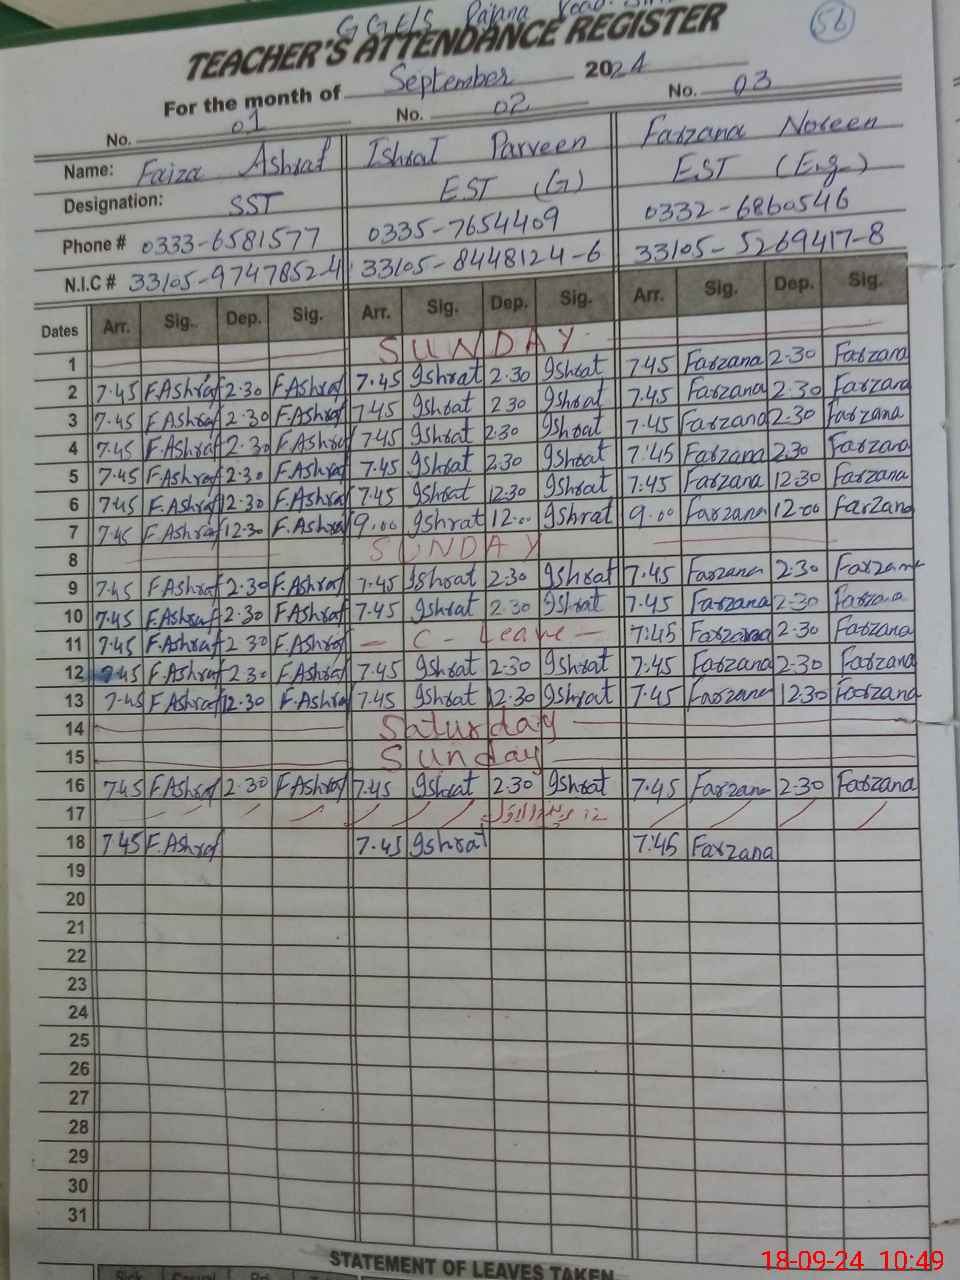 GGE/S Pajana Road
56
TEACHER'S ATTENDANCE REGISTER
For the month of September 2024
No. 01 No. 02 No. 03
Name: Faiza Ashraf Ishrat Parveen Farzana Noreen
Designation: SST EST (G) EST (Eng.)
Phone # 0333-6581577 0335-7654409 0332-6860546
N.I.C # 33105-9747852-4 33105-8448124-6 33105-5269417-8
Dates Arr. Sig. Dep. Sig. Arr. Sig. Dep. Sig. Arr. Sig. Dep. Sig.
1 SUNDAY
2 7.45 F.Ashraf 2.30 F.Ashraf 7.45 Ishrat 2.30 Ishrat 7.45 Farzana 2.30 Farzana
3 7.45 F.Ashraf 2.30 F.Ashraf 7.45 Ishrat 2.30 Ishrat 7.45 Farzana 2.30 Farzana
4 7.45 F.Ashraf 2.30 F.Ashraf 7.45 Ishrat 2.30 Ishrat 7.45 Farzana 2.30 Farzana
5 7.45 F.Ashraf 2.30 F.Ashraf 7.45 Ishrat 2.30 Ishrat 7:45 Farzana 2.30 Farzana
6 7.45 F.Ashraf 12.30 F.Ashraf 7.45 Ishrat 12.30 Ishrat 7.45 Farzana 12.30 Farzana
7 7.45 F.Ashraf 12.30 F.Ashraf 9.00 Ishrat 12.00 Ishrat 9.00 Farzana 12.00 Farzana
8 SUNDAY
9 7.45 F.Ashraf 2.30 F.Ashraf 7.45 Ishrat 2.30 Ishrat 7.45 Farzana 2.30 Farzana
10 7.45 F.Ashraf 2.30 F.Ashraf 7.45 Ishrat 2.30 Ishrat 7.45 Farzana 2.30 Farzana
11 7.45 F.Ashraf 2.30 F.Ashraf — C - Leave — 7:45 Farzana 2.30 Farzana
12 7.45 F.Ashraf 2.30 F.Ashraf 7.45 Ishrat 2.30 Ishrat 7.45 Farzana 2.30 Farzana
13 7.45 F.Ashraf 12.30 F.Ashraf 7.45 Ishrat 12.30 Ishrat 7.45 Farzana 12.30 Farzana
14 Saturday
15 Sunday
16 7.45 F.Ashraf 2.30 F.Ashraf 7.45 Ishrat 2.30 Ishrat 7.45 Farzana 2.30 Farzana
17
18 7.45 F.Ashraf 7.45 Ishrat 7:45 Farzana
19
20
21
22
23
24
25
26
27
28
29
30
31
STATEMENT OF LEAVES TAKEN
Sick Casual
18-09-24 10:49